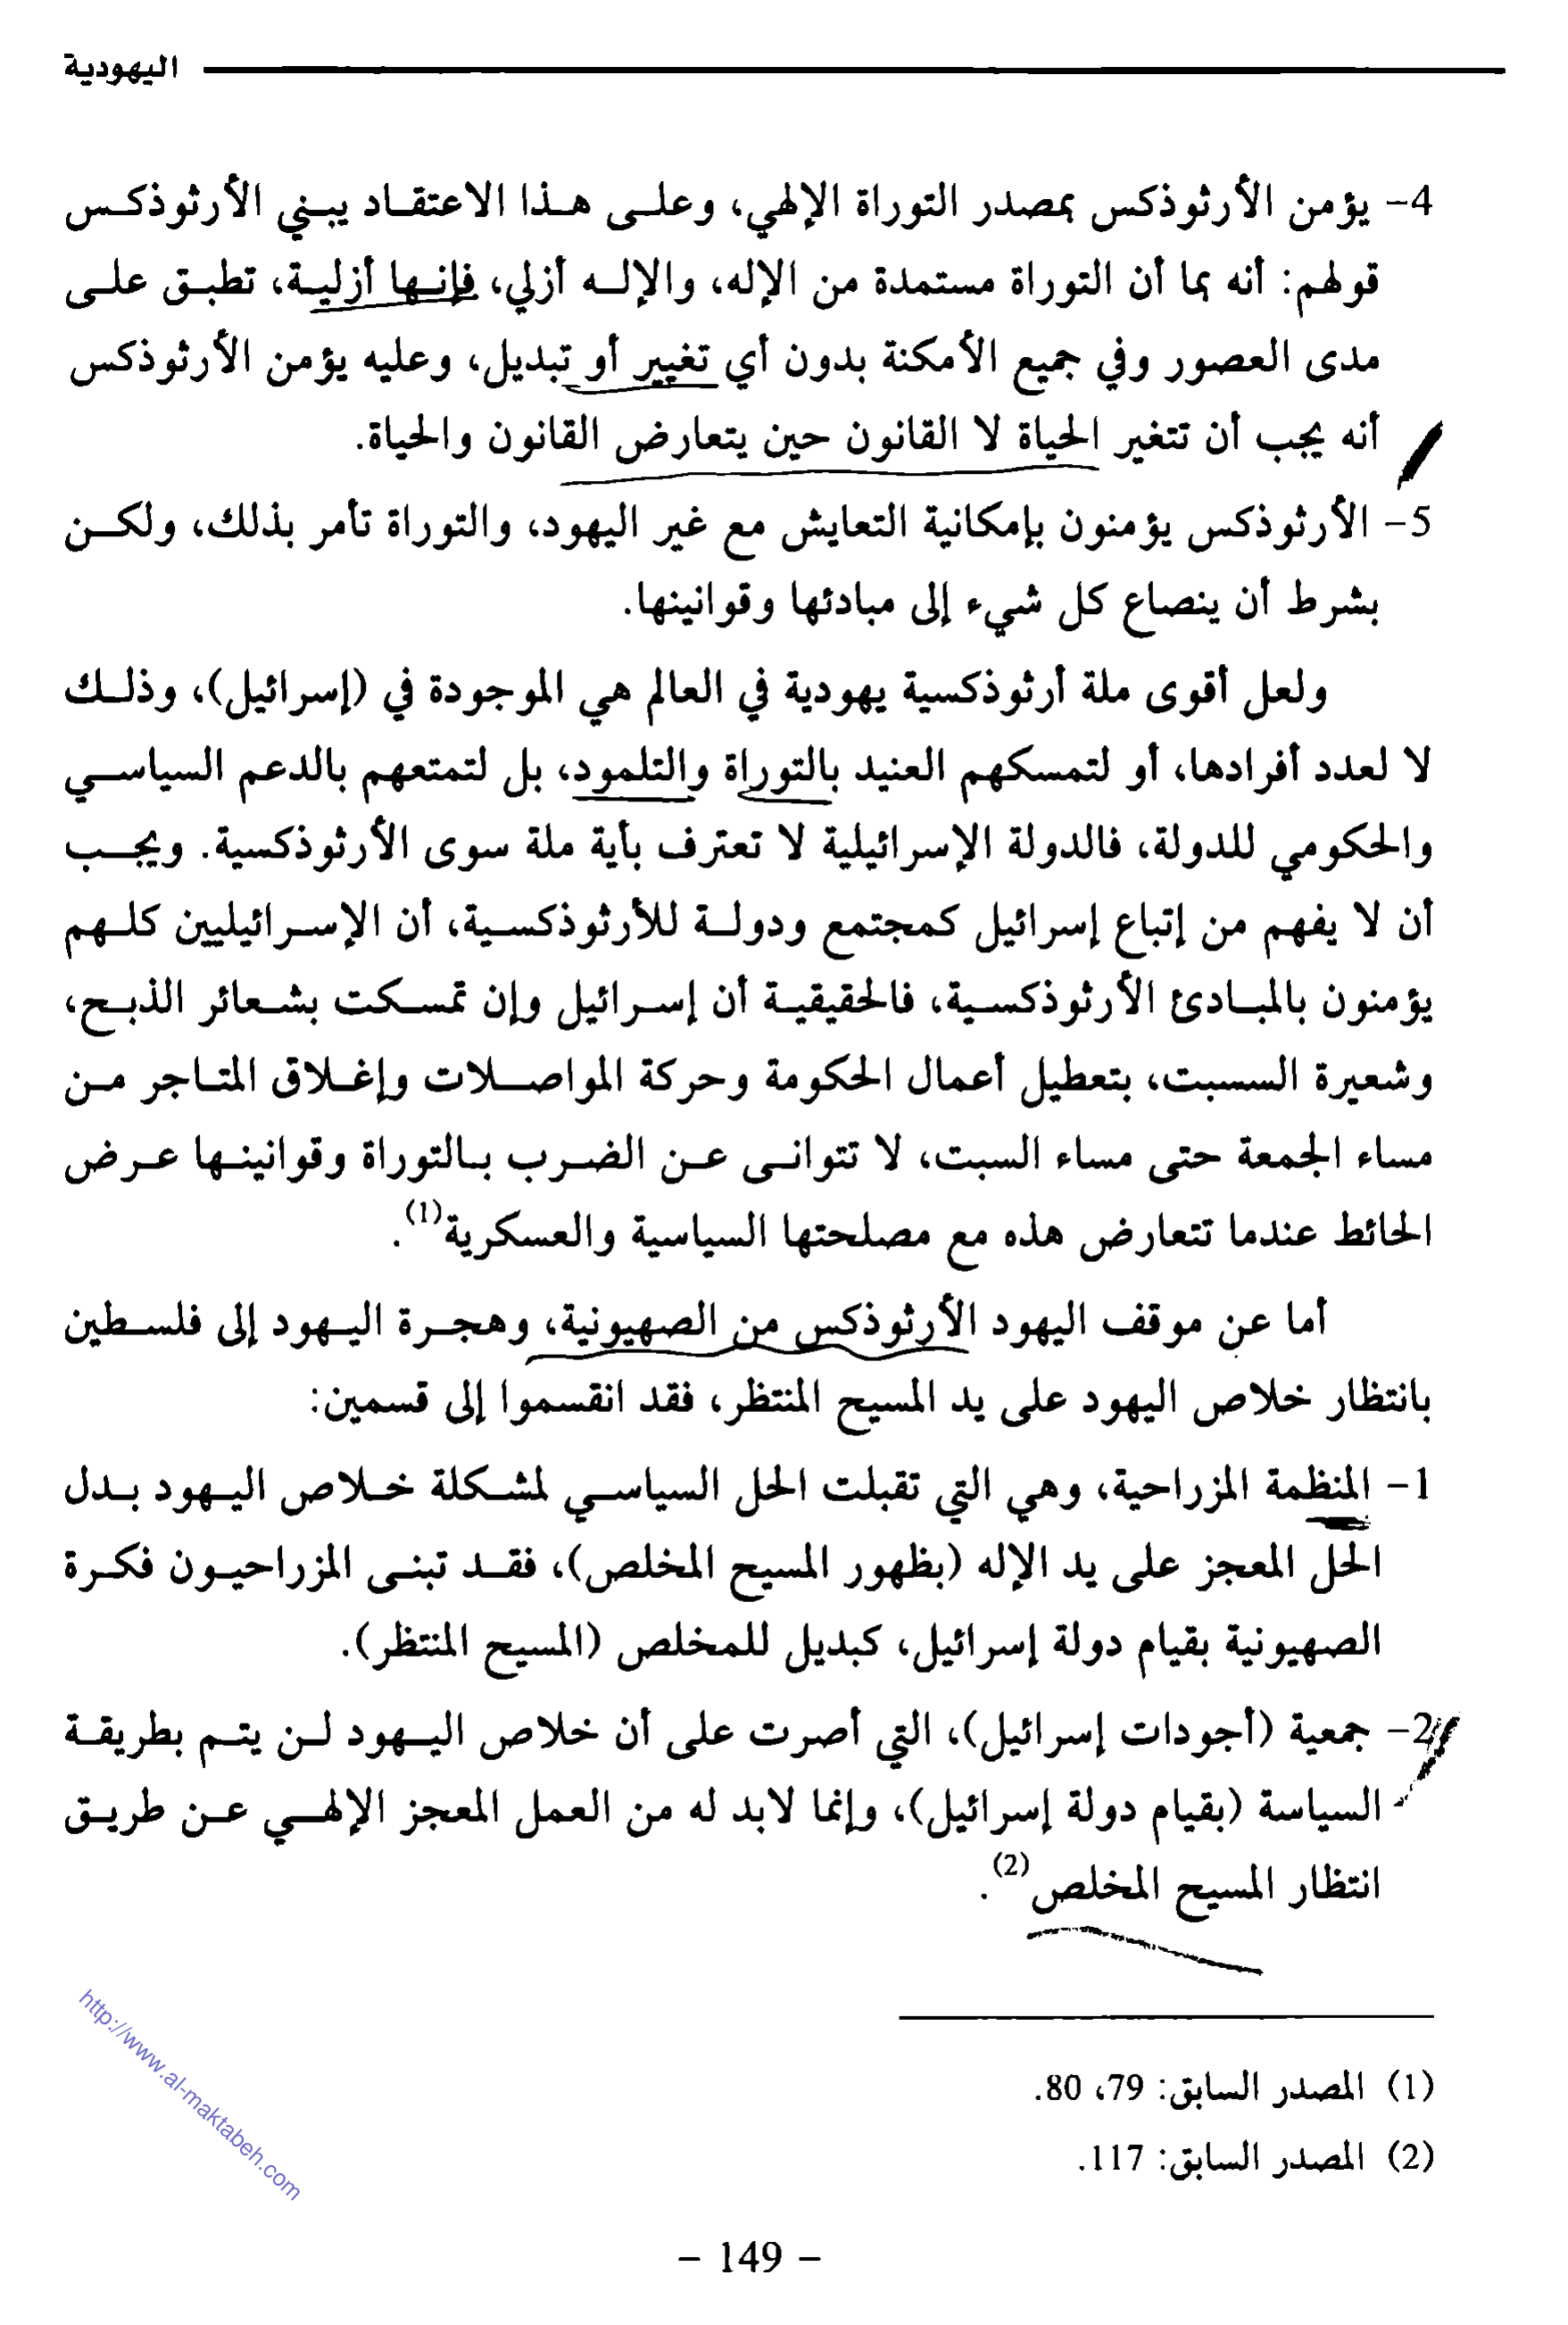 اليهودية
4- يؤمن الأرثوذكس بمصدر التوراة الإلهي، وعلى هذا الاعتقاد يبني الأرثوذكس
قولهم: أنه بما أن التوراة مستمدة من الإله، والإله أزلي، فإنها أزلية، تطبق على
مدى العصور وفي جميع الأمكنة بدون أي تغيير أو تبديل، وعليه يؤمن الأرثوذكس
أنه يجب أن تتغير الحياة لا القانون حين يتعارض القانون والحياة.
5- الأرثوذكس يؤمنون بإمكانية التعايش مع غير اليهود، والتوراة تأمر بذلك، ولكن
بشرط أن ينصاع كل شيء إلى مبادئها وقوانينها.
ولعل أقوى ملة أرثوذكسية يهودية في العالم هي الموجودة في (إسرائيل)، وذلك
لا لعدد أفرادها، أو لتمسكهم العنيد بالتوراة والتلمود، بل لتمتعهم بالدعم السياسي
والحكومي للدولة، فالدولة الإسرائيلية لا تعترف بأية ملة سوى الأرثوذكسية. ويجب
أن لا يفهم من إتباع إسرائيل كمجتمع ودولة للأرثوذكسية، أن الإسرائيليين كلهم
يؤمنون بالمبادئ الأرثوذكسية، فالحقيقية أن إسرائيل وإن تمسكت بشعائر الذبح،
وشعيرة السسبت، بتعطيل أعمال الحكومة وحركة المواصلات وإغلاق المتاجر من
مساء الجمعة حتى مساء السبت، لا تتوانى عن الضرب بالتوراة وقوانينها عرض
الحائط عندما تتعارض هذه مع مصلحتها السياسية والعسكرية(1).
أما عن موقف اليهود الأرثوذكس من الصهيونية، وهجرة اليهود إلى فلسطين
بانتظار خلاص اليهود على يد المسيح المنتظر، فقد انقسموا إلى قسمين:
1- المنظمة المزراحية، وهي التي تقبلت الحل السياسي لمشكلة خلاص اليهود بدل
الحل المعجز على يد الإله (بظهور المسيح المخلص)، فقد تبنى المزراحيون فكرة
الصهيونية بقيام دولة إسرائيل، كبديل للمخلص (المسيح المنتظر).
2- جمعية (أجودات إسرائيل)، التي أصرت على أن خلاص اليهود لن يتم بطريقة
السياسة (بقيام دولة إسرائيل)، وإنما لابد له من العمل المعجز الإلهي عن طريق
انتظار المسيح المخلص(2).
(1) المصدر السابق: 79، 80.
(2) المصدر السابق: 117.
http://www.al-maktabeh.com
- 149 -